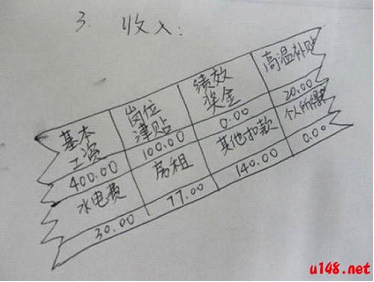 3. 收入:
基本工资 岗位津贴 绩效奖金 高温补贴
400.00 100.00 0.00 20.00
水电费 房租 其他扣款 个人所得
30.00 77.00 140.00 0.00
u148.net